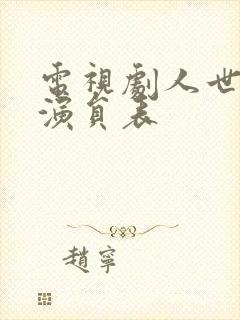 電視劇人世
演員表
趙寧